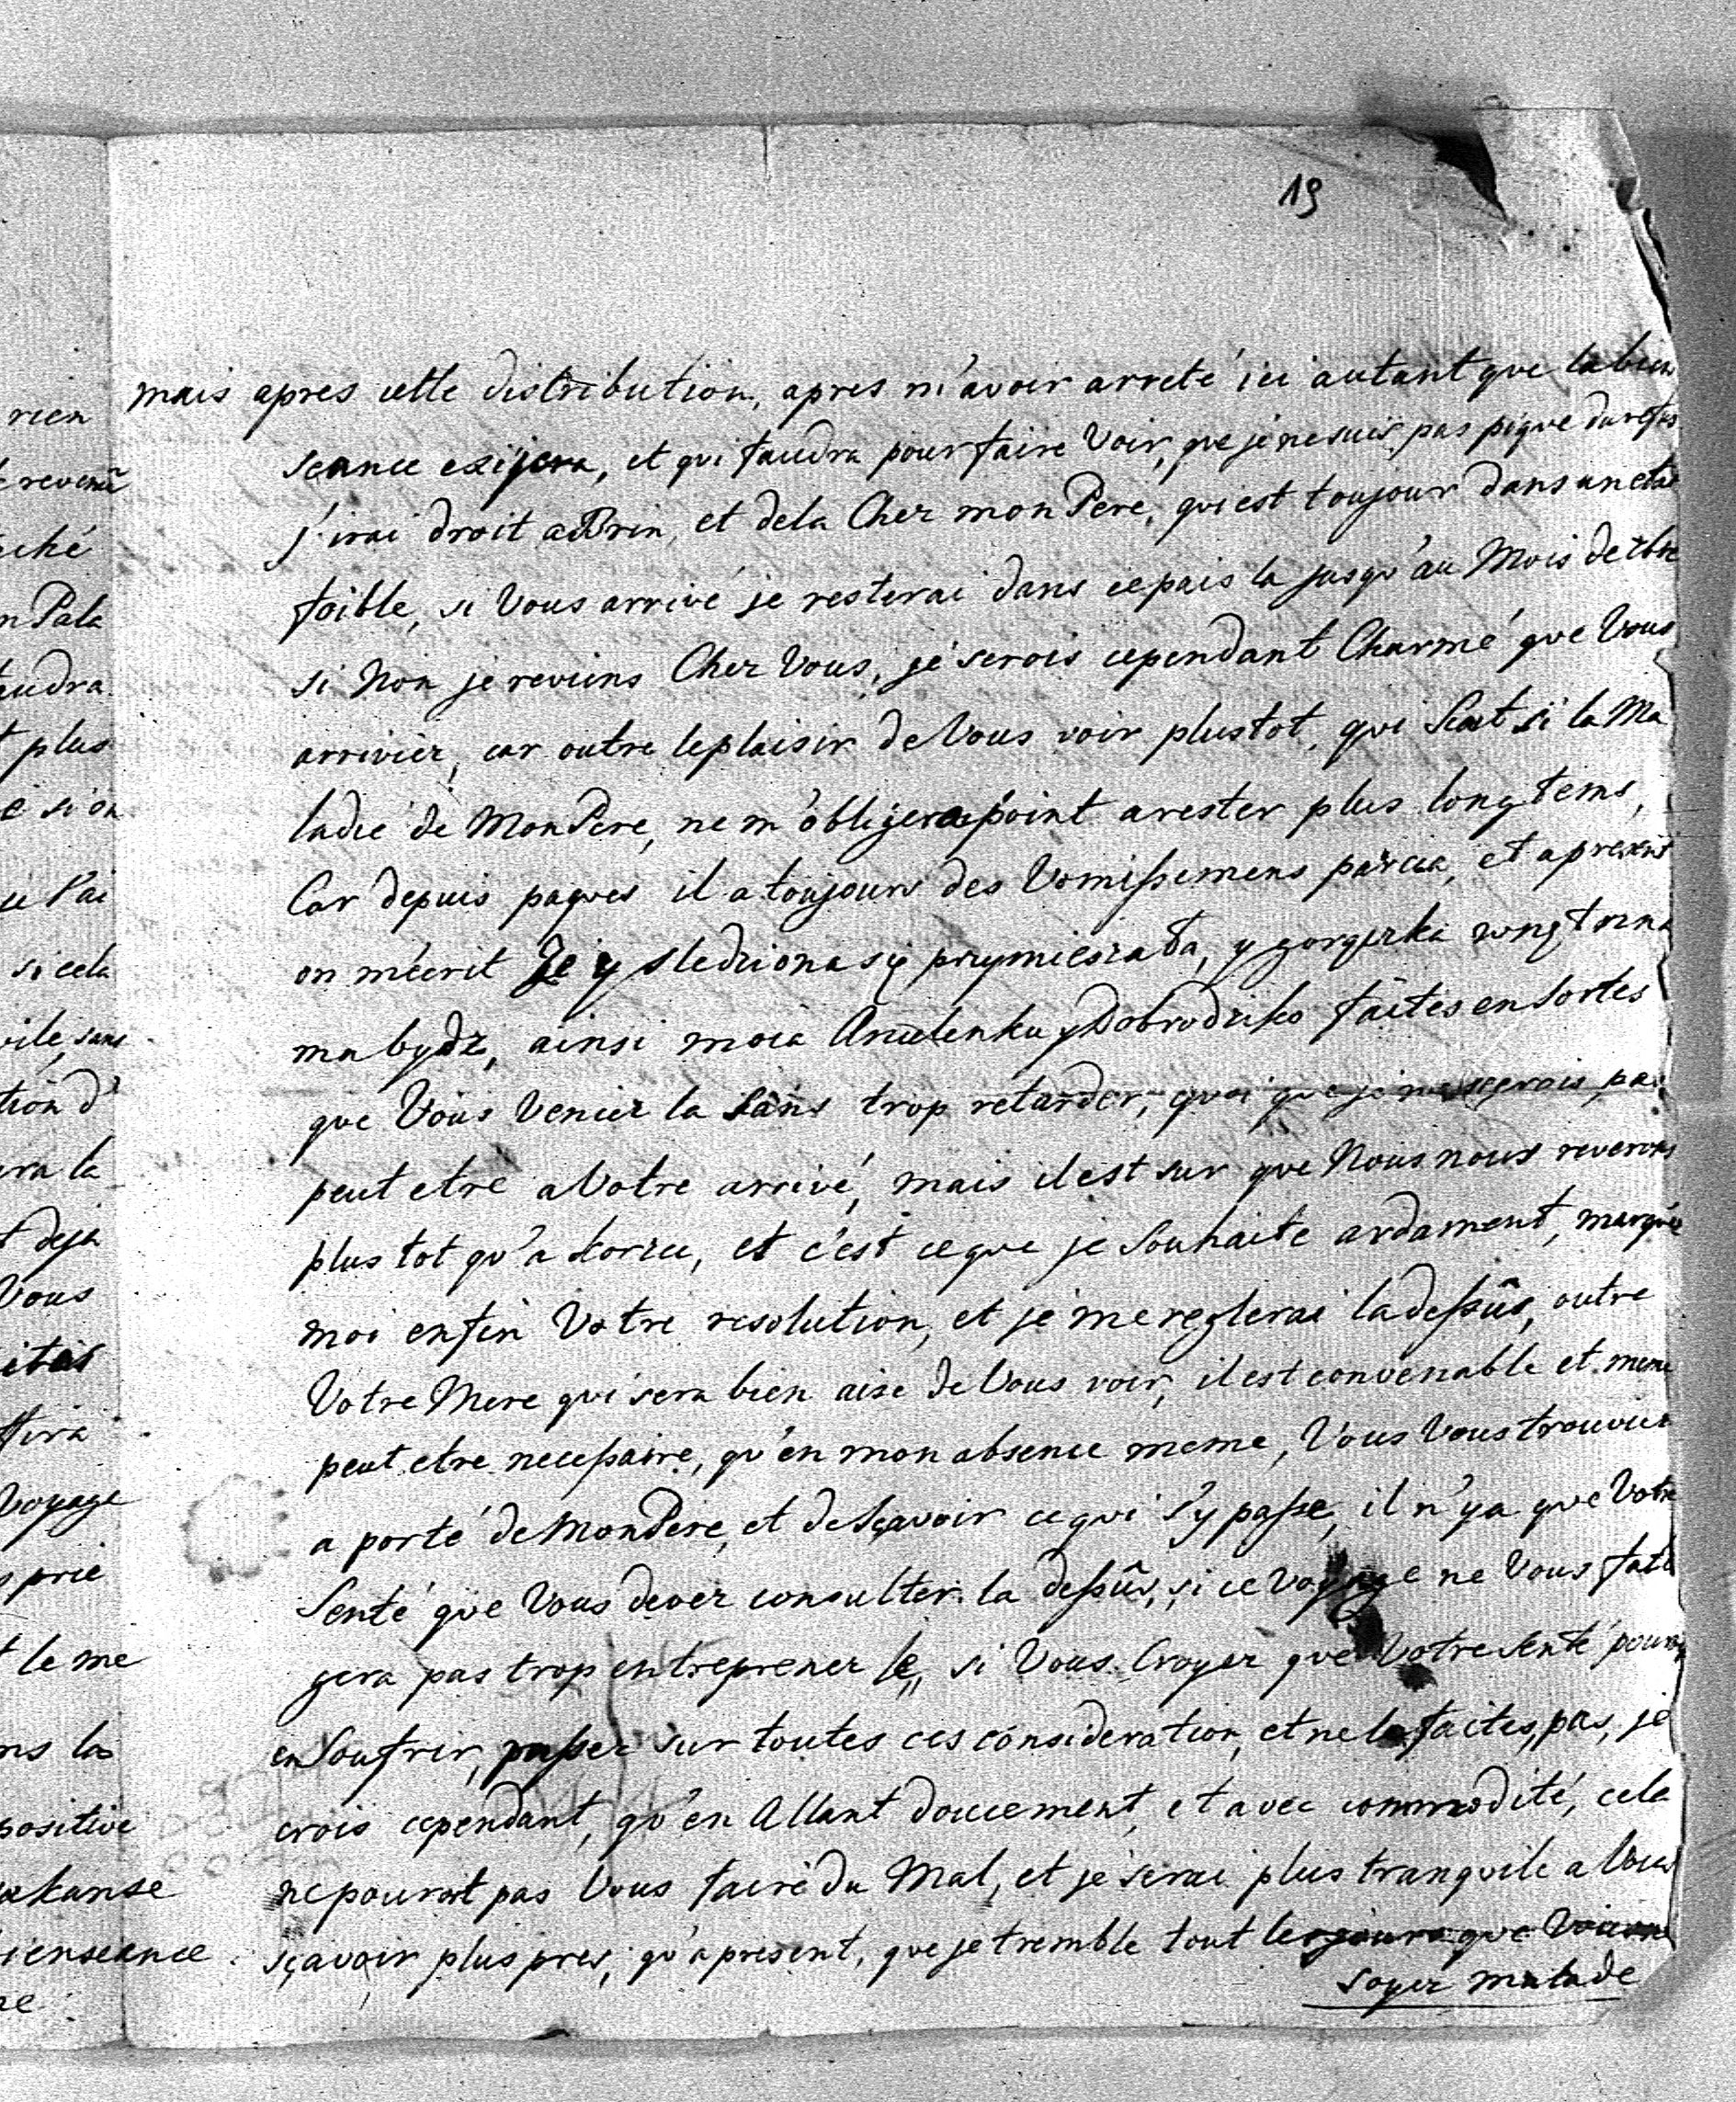 19
mais apres cette distribution, apres m'avoir arreté ici autant que la bien
seance exigera, et qui faudra pour faire Voir, que je ne suis pas piqué du refus
j'irai droit a Brin, et de la Chez mon Pere, qui est toujour dans un etat
foible, si Vous arrivé je resterai dans ce pais la jusqu'au Mois de
si Non je reviens Chez Vous, je serois cependant Charmé que Vous
arriviez, car outre le plaisir de Vous voir plustot, qui Scat si la Ma
ladie de Mon Pere, ne m'obligera point a rester plus long tems,
Car depuis paques il a toujours des Vomissemens par cia, et a present
on m'ecrit Ze y sledziona się przymieszała, y gorączka
ma bydz, ainsi moia Anielenku y Dobrodziko faites en Sortes
que Vous Veniez la Sans trop retarder, quoi que je ne serois pas
peut etre a Votre arrivé, mais il est sur que Nous nous reverons
plus tot qu'a Korzec, et c'est ce que je Souhaite ardament, marqués
moi enfin Votre resolution, et je me reglerai la dessûs, outre
Votre Mere qui sera bien aise de Vous voir, il est convenable et meme
peut etre necessaire, qu'en mon absence meme, Vous Vous trouviez
a porté de Mon Pere, et de Sçavoir ce qui s'y passe, il n'y a que Votre
Senté que Vous devez consulter la dessûs, si ce voyage ne Vous fati
gera pas trop entreprenez le, si Vous Croyez que Votre Senté pouroit
en Soufrir, passez sur toutes ces consideration, et ne le faites pas, je
crois cependant, qu'en Allant doucement, et avec commodité, cela
ne pourat pas Vous faire du Mal, et je serai plus tranquile a Vous
sçavoir plus pres, qu'a present, que je tremble tout les jours que Vous ne
soyez malade
rien
revenu
ché
n Pala
audra
t plus
é si on
l'ai
si cela
ile, sans
tion d'
ra la
t deja
Vous
ités
tira
Voyage
prie
t le me
ns la
positive
akanse
ienseance
ne